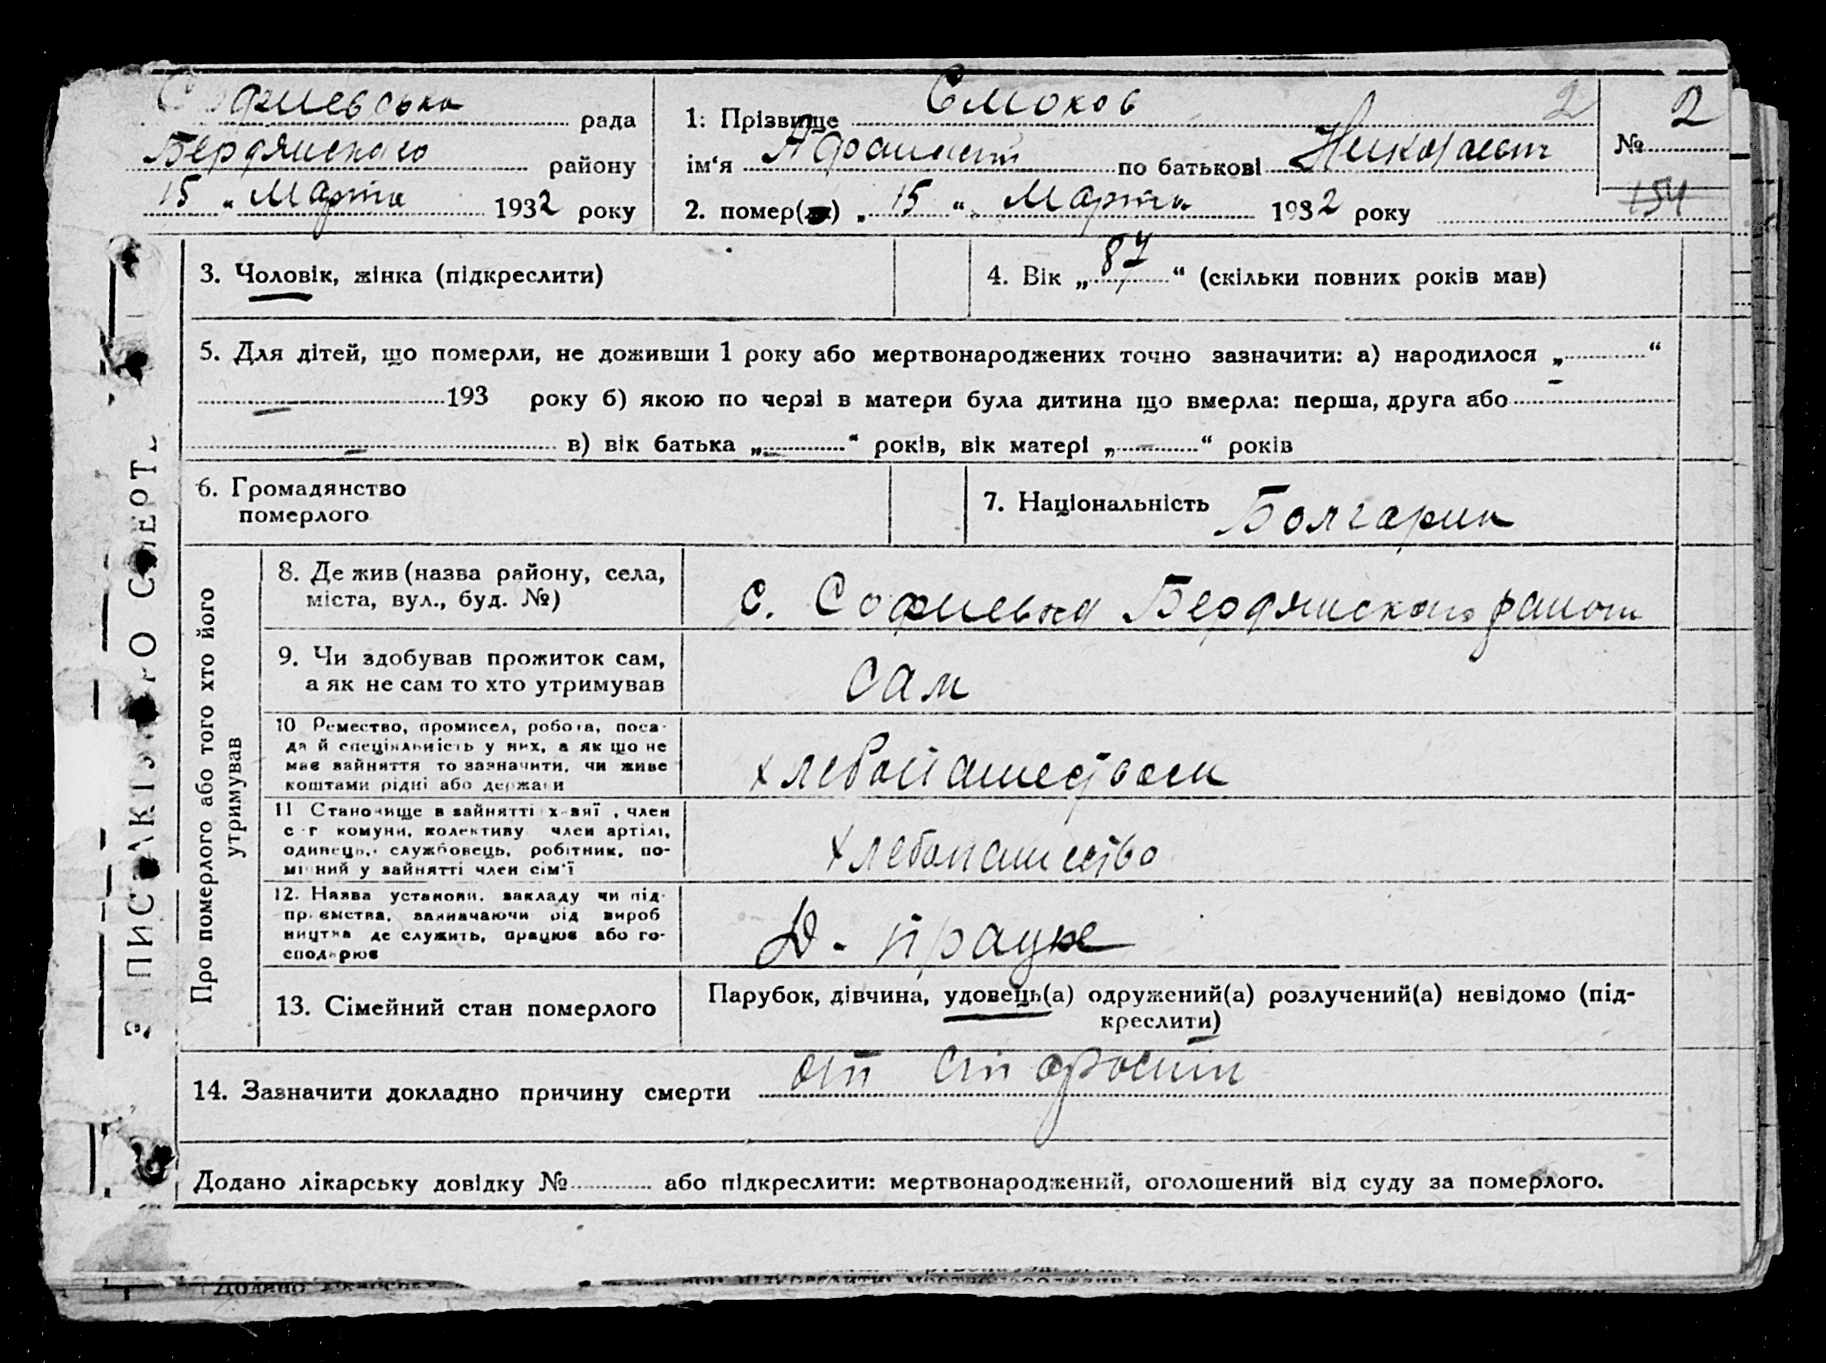 Софиевська рада
Бердянского району
15 " Марта 1932 року
1. Прізвище Смоков
ім'я Афанасий по батькові Николаевич
2. помер(ла) „ 15 " Марта 1932 року
№ 2
2
154
ЗАПИС АКТУ ПРО СМЕРТЬ
3. Чоловік, жінка (підкреслити)
4. Вік „ 87 " (скільки повних років мав)
5. Для дітей, що померли, не доживши 1 року або мертвонароджених точно зазначити: а) народилося „ — "
— 193 року б) якою по черзі в матери була дитина що вмерла: перша, друга або
— в) вік батька „ — " років, вік матері „ — " років
6. Громадянство
померлого
7. Національність Болгарин
Про померлого або того хто його
утримував
8. Де жив (назва району, села,
міста, вул., буд. №)
с. Софиевка Бердянского района
9. Чи здобував прожиток сам,
а як не сам то хто утримував
сам
10 Ремество, промисел, робота, поса-
да й спеціяльність у них, а як що не
має зайняття то зазначити, чи живе
коштами рідні або держави
хлебопашеством
11 Становище в зайнятті х-зяї , член
с-г комуни, колективу член артілі,
одинець, службовець, робітник, по-
мічний у зайнятті член сім'ї
хлебопашество
12. Назва установи, закладу чи під-
приємства, зазначаючи від вироб
ництва де служить, працює або го-
сподарює
13. Сімейний стан померлого
Парубок, дівчина, удовець(а) одружений(а) розлучений(а) невідомо (під-
креслити)
14. Зазначити докладно причину смерти от старости
Додано лікарську довідку № або підкреслити: мертвонароджений, оголошений від суду за померлого.